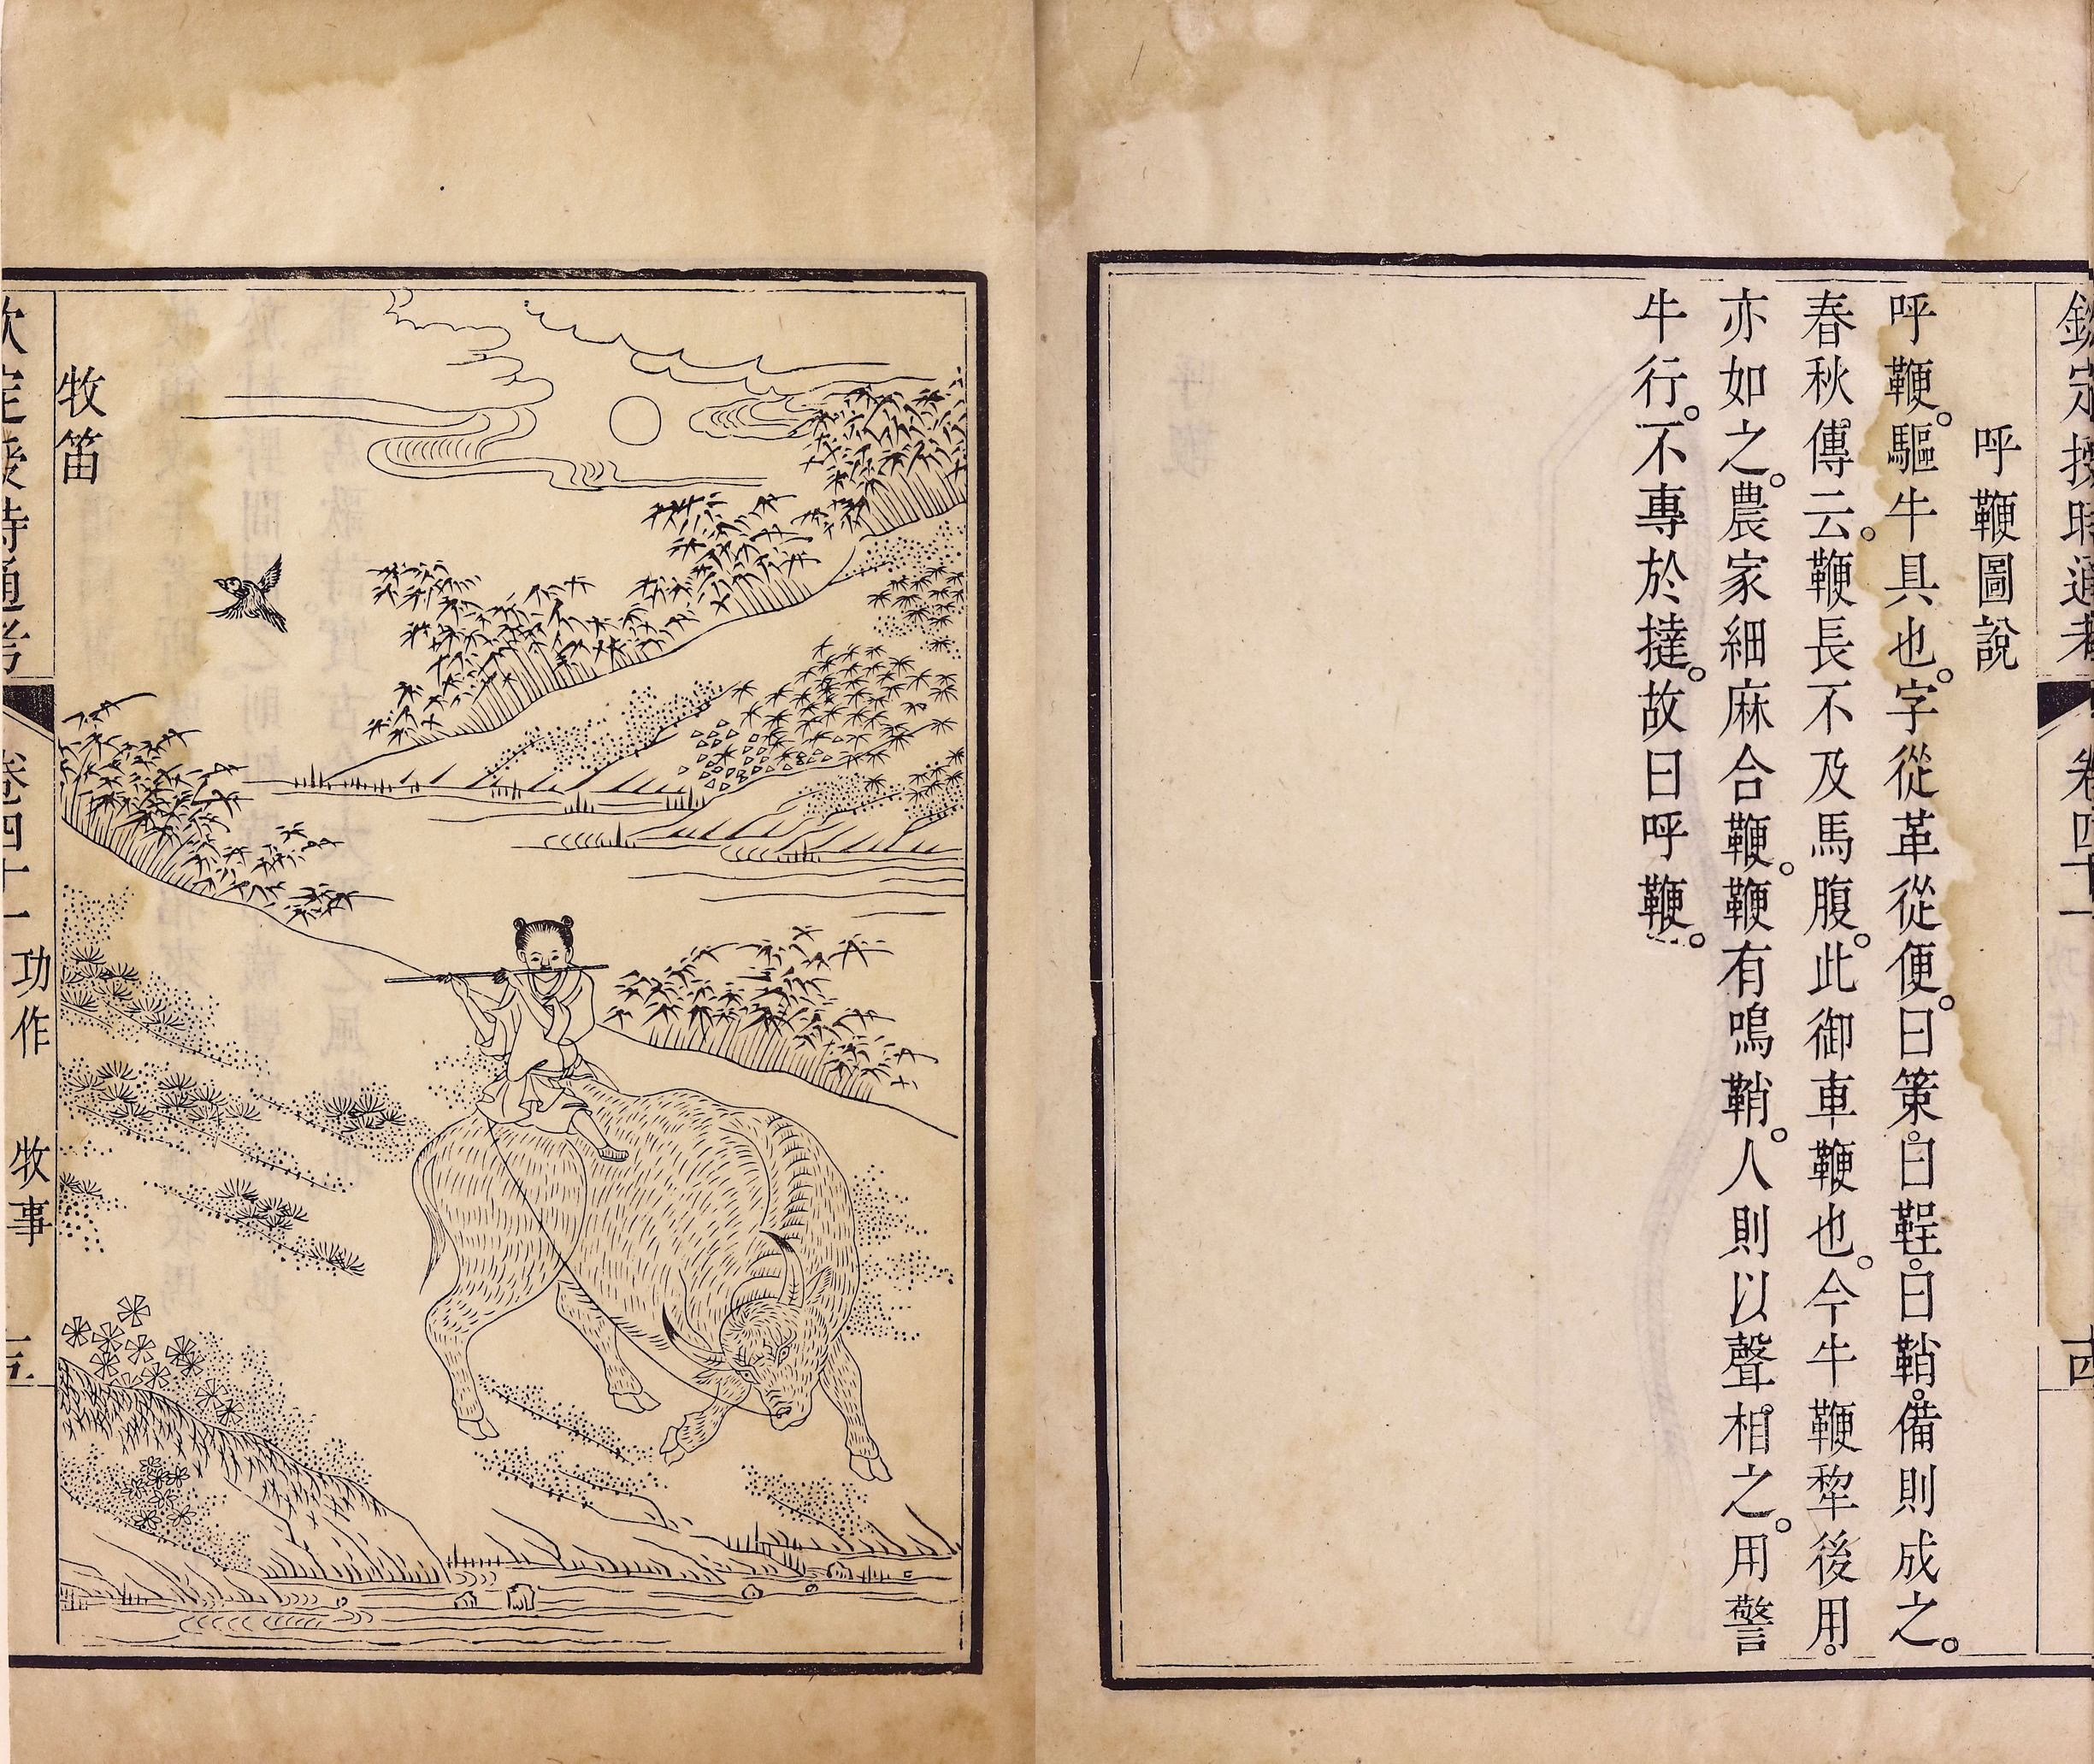 欽定授時通考 卷四十一 古
呼鞭圖說
呼鞭。驅牛具也。字從革從便。曰策。曰鞓。曰鞘。備則成之。
春秋傳云。鞭長不及馬腹。此御車鞭也。今牛鞭犂後用。
亦如之。農家細麻合鞭。鞭有鳴鞘。人則以聲相之。用警
牛行。不專於撻。故曰呼鞭。
牧笛
欽定授時通考 卷四十一 功作 牧事 十五